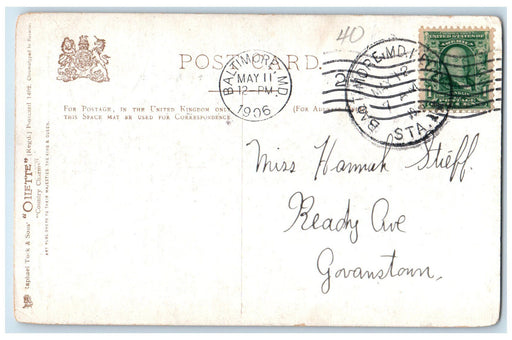 40
POST CARD.
BALTIMORE, MD.
MAY 11
12-PM
1906
2
BALTIMORE, MD.
STA.
UNITED STATES OF AMERICA
FOR POSTAGE, IN THE UNITED KINGDOM ONLY
THIS SPACE MAY BE USED FOR CORRESPONDENCE.
(FOR AD
Miss Hannah Stieff.
Ready Ave
Govanstown.
Raphael Tuck & Sons' "OILETTE" (Regd.) Postcard
"Country Charm"
ART PUBLISHERS TO THEIR MAJESTIES THE KING & QUEEN.